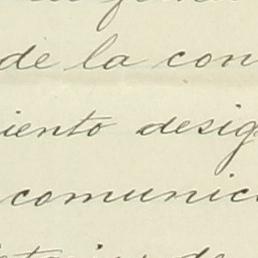 de la con
iento desig
comunic
de